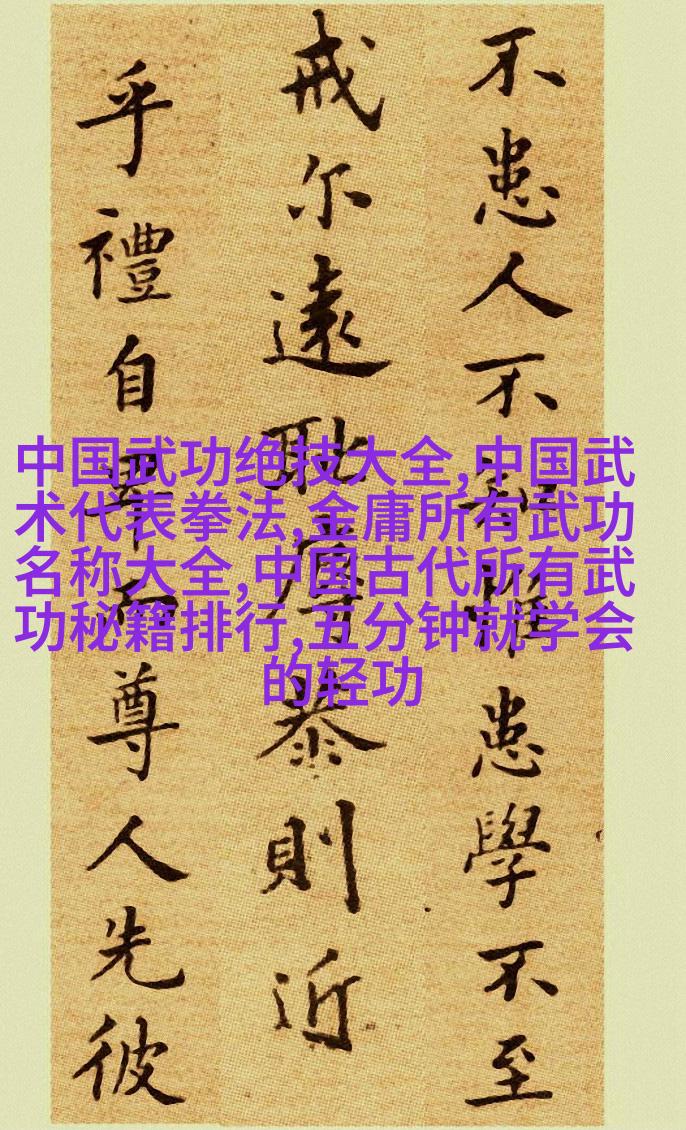 不患人不知惟患學不至
戒尔遠恥辱恭則近
乎禮自卑而尊人先彼
中国武功绝技大全,中国武
术代表拳法,金庸所有武功
名称大全,中国古代所有武
功秘籍排行,五分钟就学会
的轻功